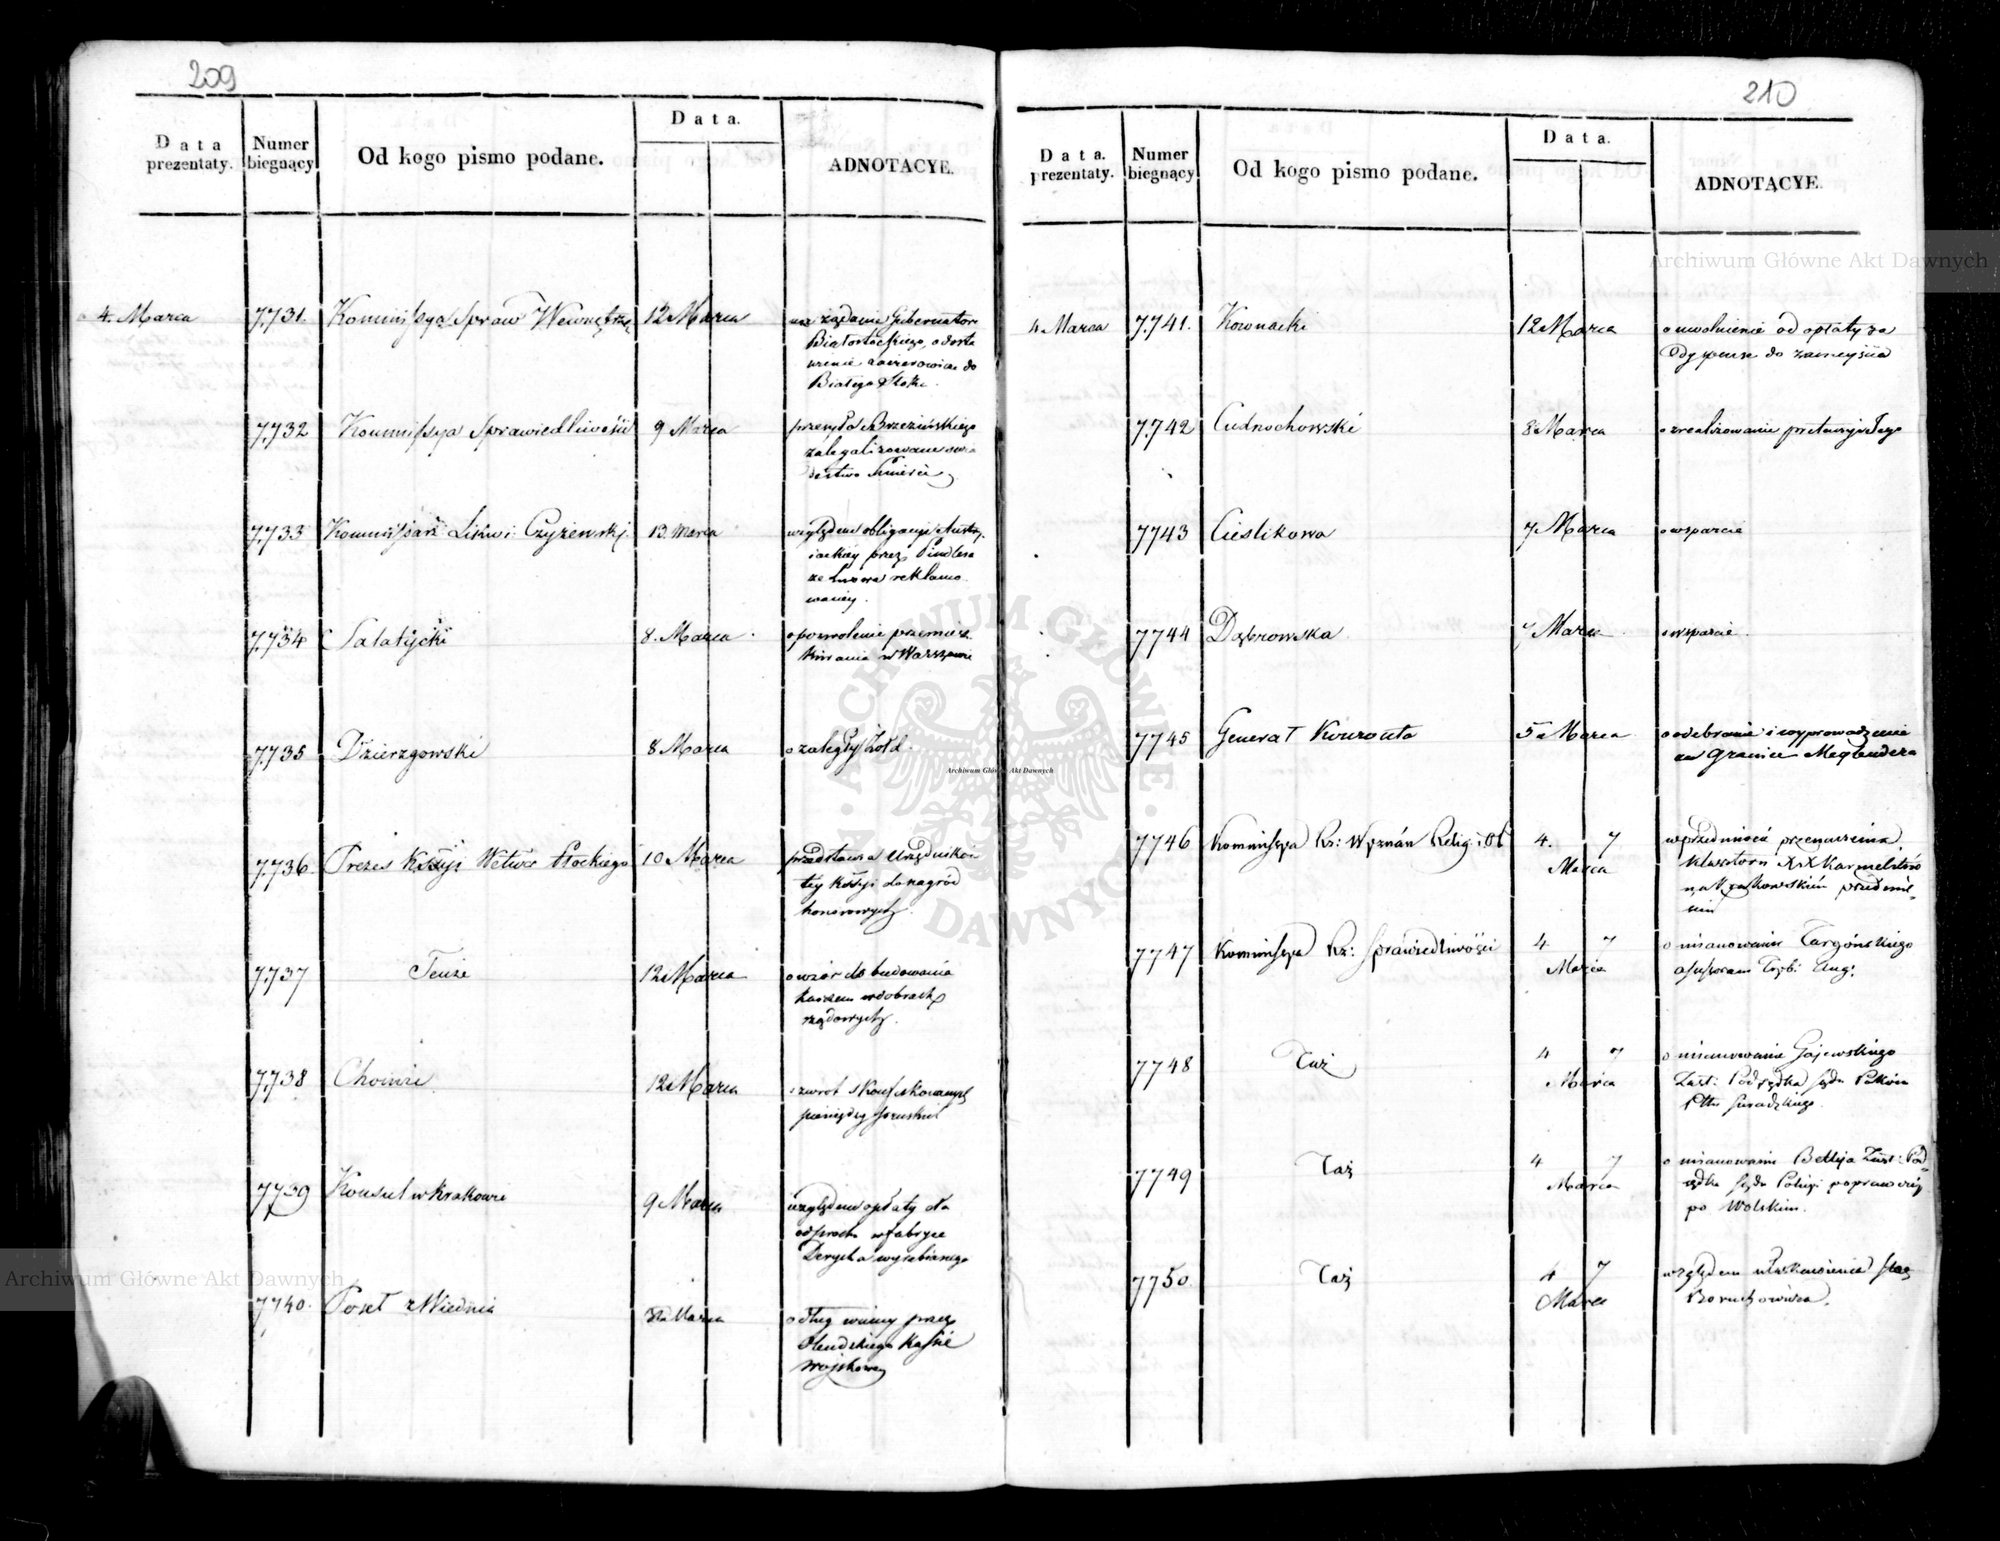 209
Data prezentaty.
Numer biegnący
Od kogo pismo podane.
Data.
ADNOTACYE.
4. Marca 7731. Kommissya Spraw Wewnętrz. 12 Marca na żądanie Gubernatora
Białostockiego, o dosta
wienie do
Białego Stoku.
7732 Kommissya Sprawiedliwości 9 Marca przesyła Brzezińskiego
zalegalizowane świa
dectwo śmierci
7733 Kommissarz Likwi: Czyżewski 13 Marca względem obligacyi Austry
iackiey przez Pindlera
ze Lwowa reklamo
waney.
7734 Sałatycki 8. Marca o pozwolenie przemiesz
kiwania w Warszawie
7735 Dzierzgowski 8 Marca o zaległy żołd.
7736. Prezes Kssyi Wztwa Płockiego 10 Marca przedstawia Urzędników
tey Kssyi do nagród
honorowych.
7737 Tenże 12 Marca o wzór do budowania
karczem w dobrach
rządowych.
7738 Choinie 12 Marca o zwrot skonfiskowanych
pieniędzy
7739 Konsul w Krakowie 9 Marca względem opłaty dla
w fabryce
wyrobionego
7740. Poseł z Wiednia Marca o dług winny przez
Olendzkiego Kassie
Woyskowey
210
Data. prezentaty.
Numer biegnący
Od kogo pismo podane.
Data.
ADNOTACYE.
4 Marca 7741. Kownacki 12 Marca o uwolnienie od opłaty za
Dyspensę do zamęyścia
7742 Cudnochowski 8 Marca o zrealizowanie pretensyi Jego
7743 Cieślikowa 7 Marca o wsparcie
7744 Dąbrowska 7 Marca o wsparcie.
7745 Generał Kouronta 5 Marca o odebranie i wyprowadzenie
za Granicę Meglendera
7746 Kommissya Rz: Wyznań Relig: i Oś 4. 7 Marca w przedmiocie przenoszenia
klasztoru XX Karmelitów
na Krakowskim przedmie-
ściu
7747 Kommissya Rz: Sprawiedliwości 4 7 Marca o mianowanie Targońskiego
assessorem Tryb: Aug:
7748 Taż 4 7 Marca o mianowanie Gajewskiego
Zast: Podsędka Sądu Pokoiu
Pttu Sieradzkiego.
7749 Taż 4 7 Marca o mianowanie Bettyja Zast: Pod-
sędka Sądu Policyi poprawczey
po Wolskim.
7750. Taż 4 7 Marca względem ułaskawienia
Boruchowicza.
Archiwum Główne Akt Dawnych
Archiwum Główne Akt Dawnych
Archiwum Główne Akt Dawnych
ARCHIWUM GŁÓWNE AKT DAWNYCH